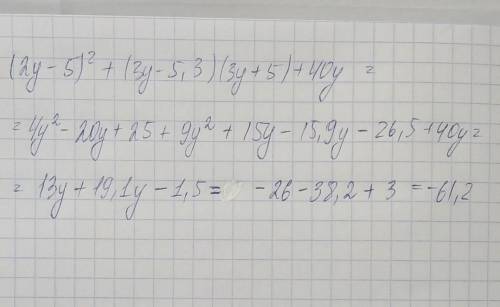 (2y-5)² + (3y-5,3)(3y+5)+40y =
= 4y²-20y+25+9y²+15y-15,9y-26,5+40y=
= 13y+19,1y-1,5= -26-38,2+3 =-61,2